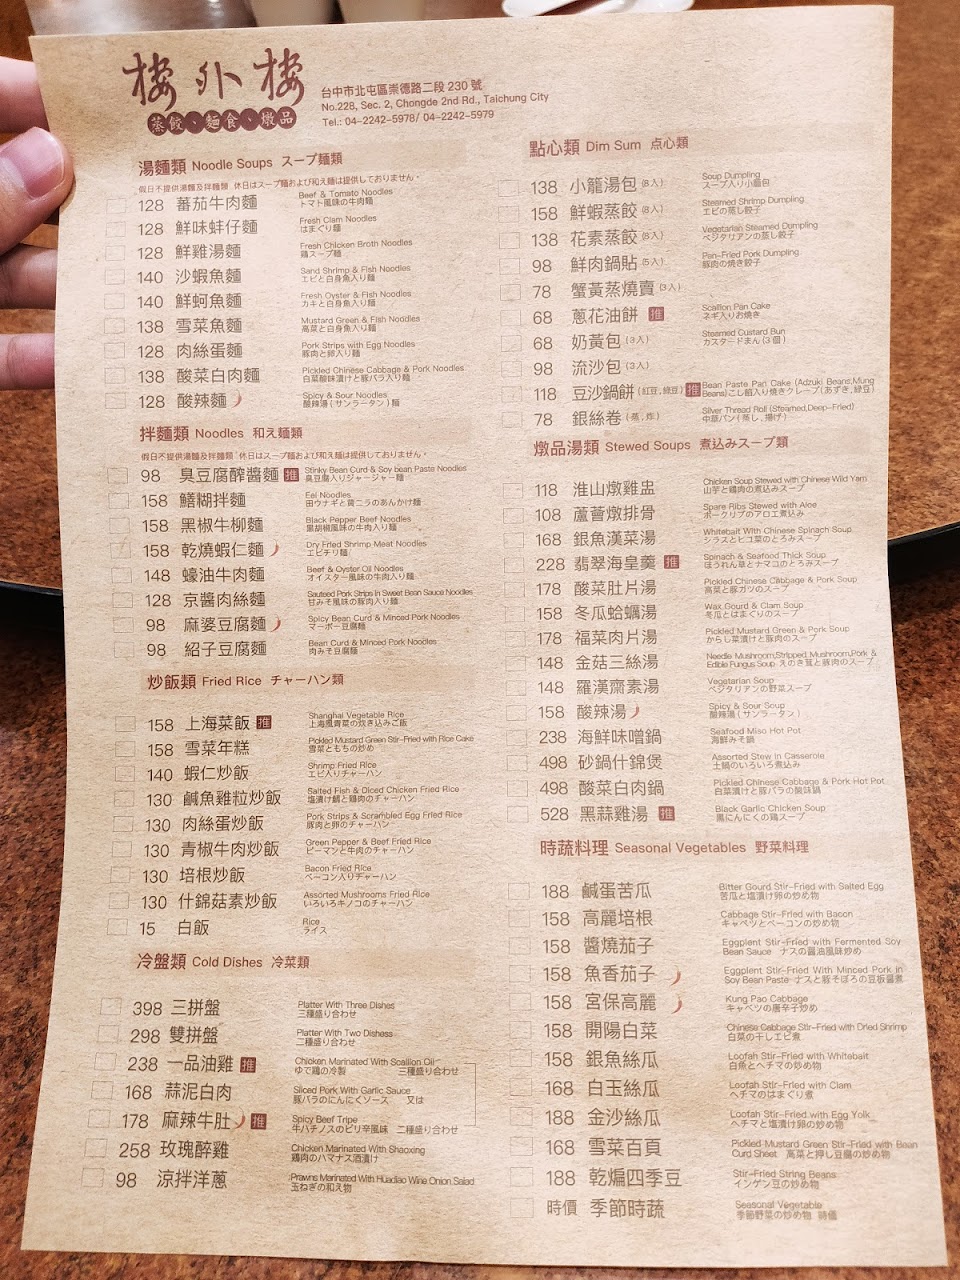 樓外樓
蒸餃、麵食、燉品
台中市北屯區崇德路二段 230 號
No.228, Sec. 2, Chongde 2nd Rd., Taichung City
Tel.: 04-2242-5978/ 04-2242-5979
湯麵類 Noodle Soups スープ麺類
假日不提供湯麵及拌麵類 休日はスープ麺および和え麺は提供しておりません。
128 蕃茄牛肉麵 Beef & Tomato Noodles
トマト風味の牛肉麺
128 鮮味蚌仔麵 Fresh Clam Noodles
はまぐり麺
128 鮮雞湯麵 Fresh Chicken Broth Noodles
鶏スープ麺
140 沙蝦魚麵 Sand Shrimp & Fish Noodles
エビと白身魚入り麺
140 鮮蚵魚麵 Fresh Oyster & Fish Noodles
カキと白身魚入り麺
138 雪菜魚麵 Mustard Green & Fish Noodles
高菜と白身魚入り麺
128 肉絲蛋麵 Pork Strips with Egg Noodles
豚肉と卵入り麺
138 酸菜白肉麵 Pickled Chinese Cabbage & Pork Noodles
白菜酸味漬けと豚バラ入り麺
128 酸辣麵 Spicy & Sour Noodles
酸辣湯(サンラータン)麺
拌麵類 Noodles 和え麺類
假日不提供湯麵及拌麵類 休日はスープ麺および和え麺は提供しておりません。
98 臭豆腐醡醬麵 推 Stinky Bean Curd & Soy bean Paste Noodles
臭豆腐入りジャージャー麺
158 鱔糊拌麵 Eel Noodles
田ウナギと黄ニラのあんかけ麺
158 黑椒牛柳麵 Black Pepper Beef Noodles
黒胡椒風味の牛肉入り麺
158 乾燒蝦仁麵 Dry Fried Shrimp Meat Noodles
エビチリ麺
148 蠔油牛肉麵 Beef & Oyster Oil Noodles
オイスター風味の牛肉入り麺
128 京醬肉絲麵 Sauteed Pork Strips in Sweet Bean Sauce Noodles
甘みそ風味の豚肉入り麺
98 麻婆豆腐麵 Spicy Bean Curd & Minced Pork Noodles
マーボー豆腐麺
98 紹子豆腐麵 Bean Curd & Minced Pork Noodles
肉みそ豆腐麺
炒飯類 Fried Rice チャーハン類
158 上海菜飯 推 Shanghai Vegetable Rice
上海風青菜の炊き込みご飯
158 雪菜年糕 Pickled Mustard Green Stir-Fried with Rice Cake
雪菜ともちの炒め
140 蝦仁炒飯 Shrimp Fried Rice
エビ入りチャーハン
130 鹹魚雞粒炒飯 Salted Fish & Diced Chicken Fried Rice
塩漬け魚と鶏肉のチャーハン
130 肉絲蛋炒飯 Pork Strips & Scrambled Egg Fried Rice
豚肉と卵のチャーハン
130 青椒牛肉炒飯 Green Pepper & Beef Fried Rice
ピーマンと牛肉のチャーハン
130 培根炒飯 Bacon Fried Rice
ベーコン入りチャーハン
130 什錦菇素炒飯 Assorted Mushrooms Fried Rice
いろいろキノコのチャーハン
15 白飯 Rice
ライス
冷盤類 Cold Dishes 冷菜類
398 三拼盤 Platter With Three Dishes
三種盛り合わせ
298 雙拼盤 Platter With Two Dishess
二種盛り合わせ
238 一品油雞 推 Chicken Marinated With Scallion Oil
ゆで鶏の冷製 三種盛り合わせ
168 蒜泥白肉 Sliced Pork With Garlic Sauce
豚バラのにんにくソース 又は
178 麻辣牛肚 推 Spicy Beef Tripe
牛ハチノスのピリ辛風味 二種盛り合わせ
258 玫瑰醉雞 Chicken Marinated With Shaoxing
鶏肉のハマナス酒漬け
98 涼拌洋蔥 Prawns Marinated With Huadiao Wine Onion Salad
玉ねぎの和え物
點心類 Dim Sum 点心類
138 小籠湯包 (8入) Soup Dumpling
スープ入り小籠包
158 鮮蝦蒸餃 (8入) Steamed Shrimp Dumpling
エビの蒸し餃子
138 花素蒸餃 (8入) Vegetarian Steamed Dumpling
ベジタリアンの蒸し餃子
98 鮮肉鍋貼 (5入) Pan-Fried Pork Dumpling
豚肉の焼き餃子
78 蟹黃蒸燒賣 (3入)
68 蔥花油餅 推 Scallion Pan Cake
ネギ入りお焼き
68 奶黃包 (3入) Steamed Custard Bun
カスタードまん(3個)
98 流沙包 (3入)
118 豆沙鍋餅 (紅豆,綠豆) 推 Bean Paste Pan Cake (Adzuki Beans,Mung
Beans)こし餡入り焼きクレープ(あずき,緑豆)
78 銀絲卷 (蒸,炸) Silver Thread Roll (Steamed,Deep-Fried)
中華パン(蒸し,揚げ)
燉品湯類 Stewed Soups 煮込みスープ類
118 淮山燉雞盅 Chicken Soup Stewed with Chinese Wild Yam
山芋と鶏肉の煮込みスープ
108 蘆薈燉排骨 Spare Ribs Stewed with Aloe
ポークリブのアロエ煮込み
168 銀魚漢菜湯 Whitebait With Chinese Spinach Soup
シラスとヒユ菜のとろみスープ
228 翡翠海皇羹 推 Spinach & Seafood Thick Soup
ほうれん草とナマコのとろみスープ
178 酸菜肚片湯 Pickled Chinese Cabbage & Pork Soup
高菜と豚ガツのスープ
158 冬瓜蛤蠣湯 Wax Gourd & Clam Soup
冬瓜とはまぐりのスープ
178 福菜肉片湯 Pickled Mustard Green & Pork Soup
からし菜漬けと豚肉のスープ
148 金菇三絲湯 Needle Mushroom,Stripped Mushroom,Pork &
Edible Fungus Soup えのき茸と豚肉のスープ
148 羅漢齋素湯 Vegetarian Soup
ベジタリアンの野菜スープ
158 酸辣湯 Spicy & Sour Soup
酸辣湯(サンラータン)
238 海鮮味噌鍋 Seafood Miso Hot Pot
海鮮みそ鍋
498 砂鍋什錦煲 Assorted Stew in Casserole
土鍋のいろいろ煮込み
498 酸菜白肉鍋 Pickled Chinese Cabbage & Pork Hot Pot
白菜漬けと豚バラの酸味鍋
528 黑蒜雞湯 推 Black Garlic Chicken Soup
黒にんにくの鶏スープ
時蔬料理 Seasonal Vegetables 野菜料理
188 鹹蛋苦瓜 Bitter Gourd Stir-Fried with Salted Egg
苦瓜と塩漬け卵の炒め物
158 高麗培根 Cabbage Stir-Fried with Bacon
キャベツとベーコンの炒め物
158 醬燒茄子 Eggplant Stir-Fried with Fermented Soy
Bean Sauce ナスの醤油風味炒め
158 魚香茄子 Eggplent Stir-Fried With Minced Pork in
Soy Bean Paste ナスと豚そぼろの豆板醤煮
158 宮保高麗 Kung Pao Cabbage
キャベツの唐辛子炒め
158 開陽白菜 Chinese Cabbage Stir-Fried with Dried Shrimp
白菜の干しエビ煮
158 銀魚絲瓜 Loofah Stir-Fried with Whitebait
白魚とヘチマの炒め物
168 白玉絲瓜 Loofah Stir-Fried with Clam
ヘチマのはまぐり煮
188 金沙絲瓜 Loofah Stir-Fried with Egg Yolk
ヘチマと塩漬け卵の炒め物
168 雪菜百頁 Pickled Mustard Green Stir-Fried with Bean
Curd Sheet 高菜と押し豆腐の炒め物
188 乾煸四季豆 Stir-Fried String Beans
インゲン豆の炒め物
時價 季節時蔬 Seasonal Vegetable
季節野菜の炒め物 時価